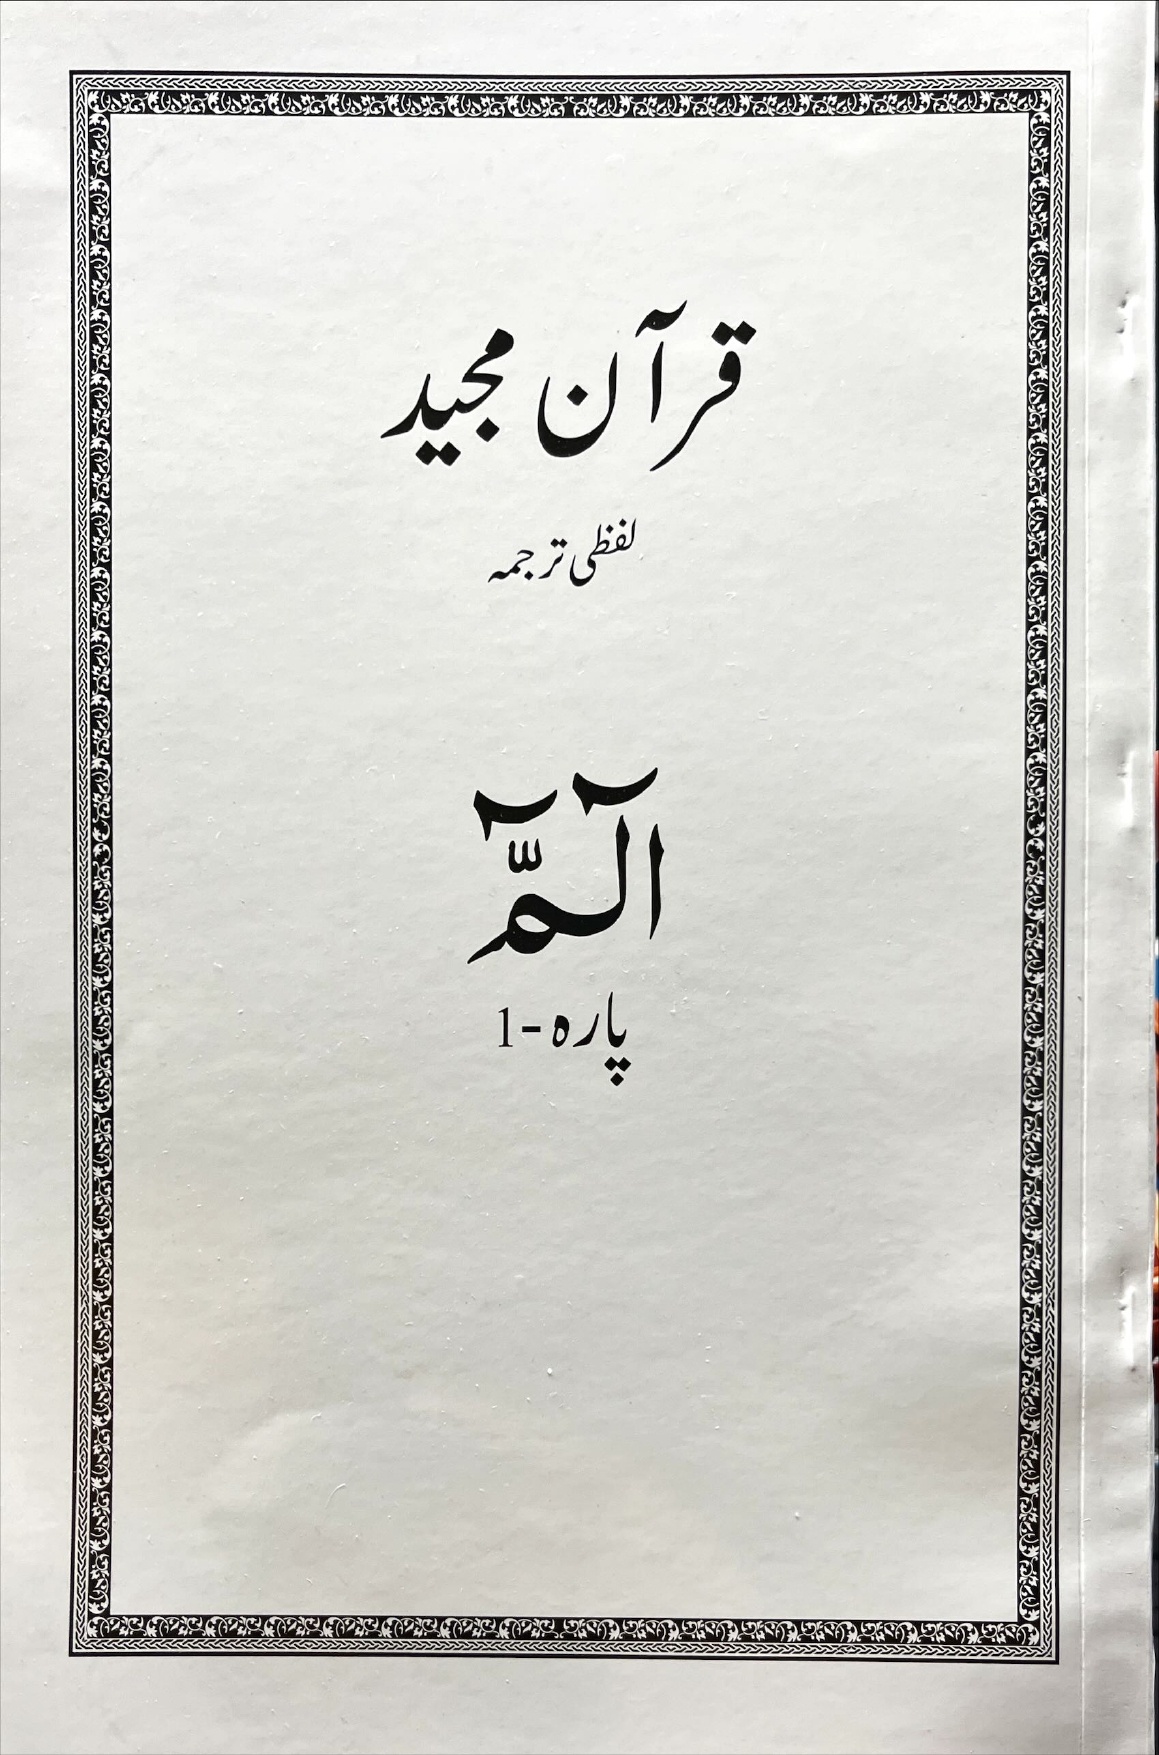 قرآن مجید
لفظی ترجمہ
الٓمّٓ
پارہ - 1